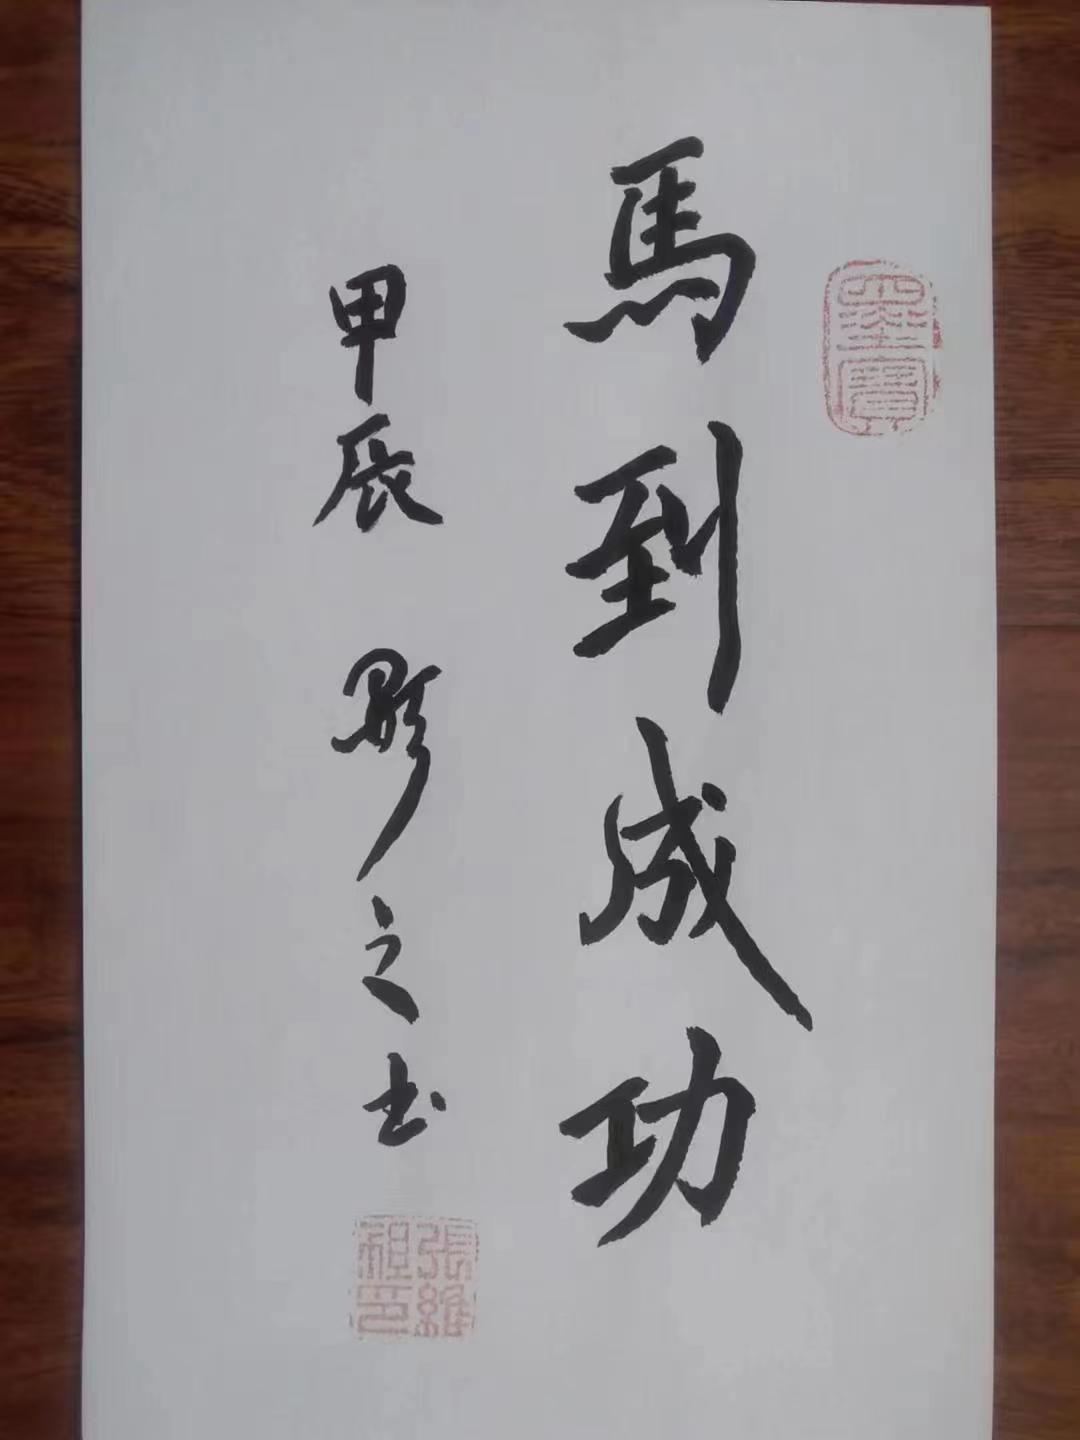 馬到成功
甲辰 之书
墨寶
張維祖印